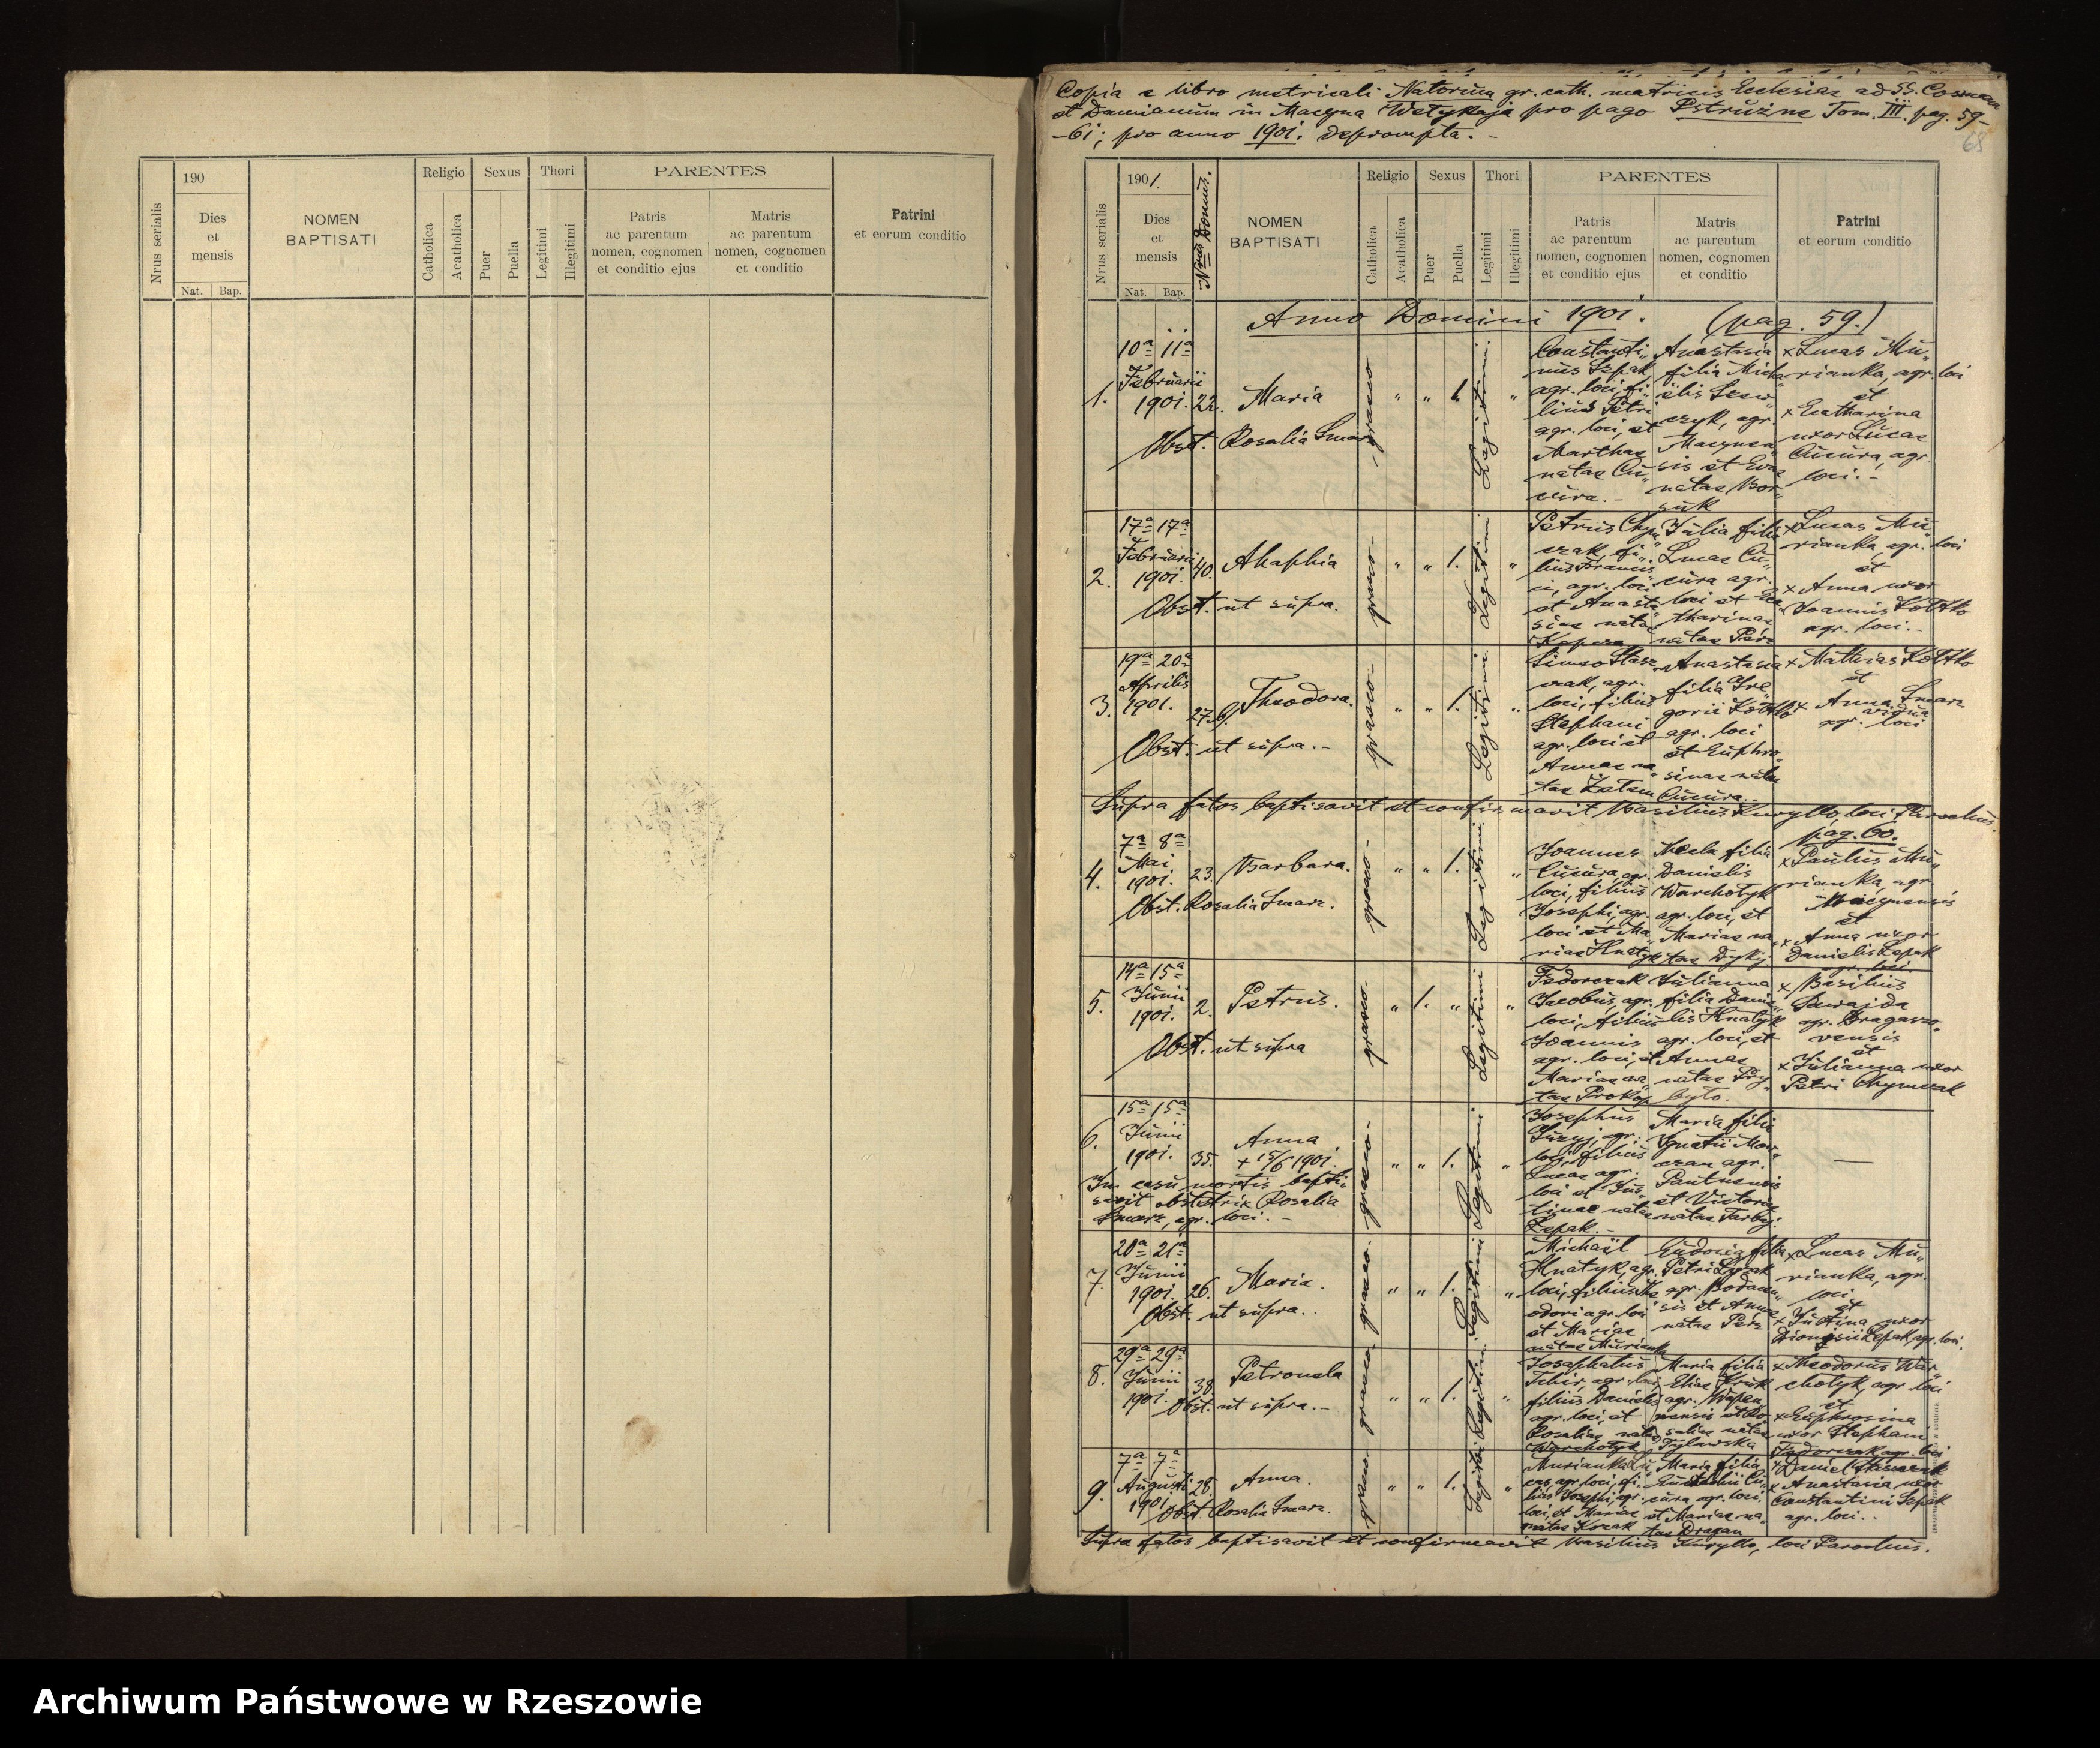 Nrus serialis
190
Dies
et
mensis
Nat. Bap.
NOMEN
BAPTISATI
Religio
Catholica
Acatholica
Sexus
Puer
Puella
Thori
Legitimi
Illegitimi
PARENTES
Patris
ac parentum
nomen, cognomen
et conditio ejus
Matris
ac parentum
nomen, cognomen
et conditio
Patrini
et eorum conditio
Copia e libro metricali Natorum gr. cath. matricis Ecclesiae ad SS. Cosmam
et Damianum in Macyna Wetykaja pro pago Pstružne Tom. III. pag. 59-
-61; pro anno 1901. deprompta. -
68
Nrus serialis
1901.
Dies
et
mensis
Nat. Bap.
Nrus Domus.
NOMEN
BAPTISATI
Religio
Catholica
Acatholica
Sexus
Puer
Puella
Thori
Legitimi
Illegitimi
PARENTES
Patris
ac parentum
nomen, cognomen
et conditio ejus
Matris
ac parentum
nomen, cognomen
et conditio
Patrini
et eorum conditio
Anno Domini 1901. (pag. 59.)
1.
10a 11a
Februarii
1901. 22. Maria
Obst. Rosalia Smarz
graeco
" " 1.
Legitimi
"
agr. loci, fi"
lius Petri
agr. loci, et
Marthae
natae Cu"
cura. -
Anastasia
filia Micha
elis
agr.
sis et Evae
natae Bor"
suk
x Lucas Mu"
rianka, agr. loci
et
x Ecatharina
uxor Lucae
Cucura, agr.
loci. -
2.
17a 17a
Februarii
1901. 40. Ahaphia
Obst. ut supra.
graeco-
" " 1.
Legitimi
"
Petrus Chym"
czak, fi"
lius Francis
ci, agr. loci
et Anasta"
siae natae
Kopcza
Julia filia
Lucae Cu"
cura agr.
loci et Eca"
tharinae
natae Perz
x Lucas Mu"
rianka, agr. loci
et
x Anna uxor
Joannis Kottko
agr. loci. -
3.
19a 20a
Aprilis
1901. 27. Theodora.
Obst. ut supra. -
graeco-
" " 1.
Legitimi
"
agr.
loci, filius
Stephani
agr. loci et
Annae na"
tae
Anastasia
filia Gre"
gorii Kottko
agr. loci
et Euphro"
sinae natae
Cucura. -
x Mathias Kottko
et
x Anna Smarz
agr. loci
Supra fatos baptisavit et confirmavit Basilius Kuryłło, loci Parochus.
pag. 60.
4.
7a 8a
Mai
1901. 23. Barbara.
Obst. Rosalia Smarz.
graeco-
" " 1.
Legitimi
"
Joannes
Cucura, agr.
loci, filius
Josephi, agr.
loci et Ma"
riae Hnatyk
Thecla filia
Danielis
Warchotyk
agr. loci, et
Mariae na"
tae Dykij
x Paulus Mu"
rianka, agr.
Macynensis
et
x Anna uxor
Danielis Lepak
agr. loci.
5.
14a 15a
Junii
1901. 2. Petrus.
Obst. ut supra
graeco.
" 1. "
Legitimi
"
Fedorczak
Jacobus, agr.
loci, filius
Joannis
agr. loci, et
Mariae na"
tae Prokop
Julianna
filia Danie"
lis Hnatyk
agr. loci, et
Annae
natae Pry"
było.
x Basilius
agr.
et
x Julianna uxor
Petri Chymczak
6.
15a 15a
Junii
1901. 35. Anna
+ 15/6 1901.
In casu mortis bapti"
savit obstetrix Rosalia
Smarz, agr. loci. -
graeco-
" " 1.
Legitimi
"
Josephus
agr.
loci, filius
Lucae agr.
loci et Jus"
tinae natae
Lepak. -
Maria filia
Ignatii
agr.
et Victoriae
natae
7.
20a 21a
Junii
1901. 26. Maria.
Obst. ut supra. .
graeco.
" " 1.
Legitimi
"
Michaël
Hnatyk, agr.
loci, filius The"
odori agr. loci
et Mariae
natae Murianka
Eudocia filia
Petri Lepak
agr.
sis et Annae
natae Perz
x Lucas Mu"
rianka, agr.
loci
et
x Justina uxor
Dionysii Lepak, agr. loci.
8.
29a 29a
Junii
1901. 38. Petronela
Obst. ut supra. -
graeco
" " 1.
Legitimi
"
Josaphatus
agr. loci
filius Danielis
agr. loci, et
Rosaliae natae
Warchotyk
Maria filia
Eliae Kruk
agr.
nensis et Ro"
saliae natae
Tylawska
x Theodorus War"
chotyk, agr. loci
et
x Euphrosina
uxor Stephani
Fedorczak, agr. loci
9.
7a 7a
Augusti
1901. 28. Anna.
Obst. Rosalia Smarz.
graeco
" " 1.
Legitimi
"
Murianka Lu"
cas, agr. loci, fi"
lius Josephi, agr.
loci, et Mariae
natae Kozak
Maria filia
Eustachii Cu"
cura, agr. loci
et Mariae na"
tae Dragan
x Daniel
x Anastasia uxor
Constantini Lepak
agr. loci. -
Supra fatos baptisavit et confirmavit Basilius Kuryłło, loci Parochus.
Archiwum Państwowe w Rzeszowie